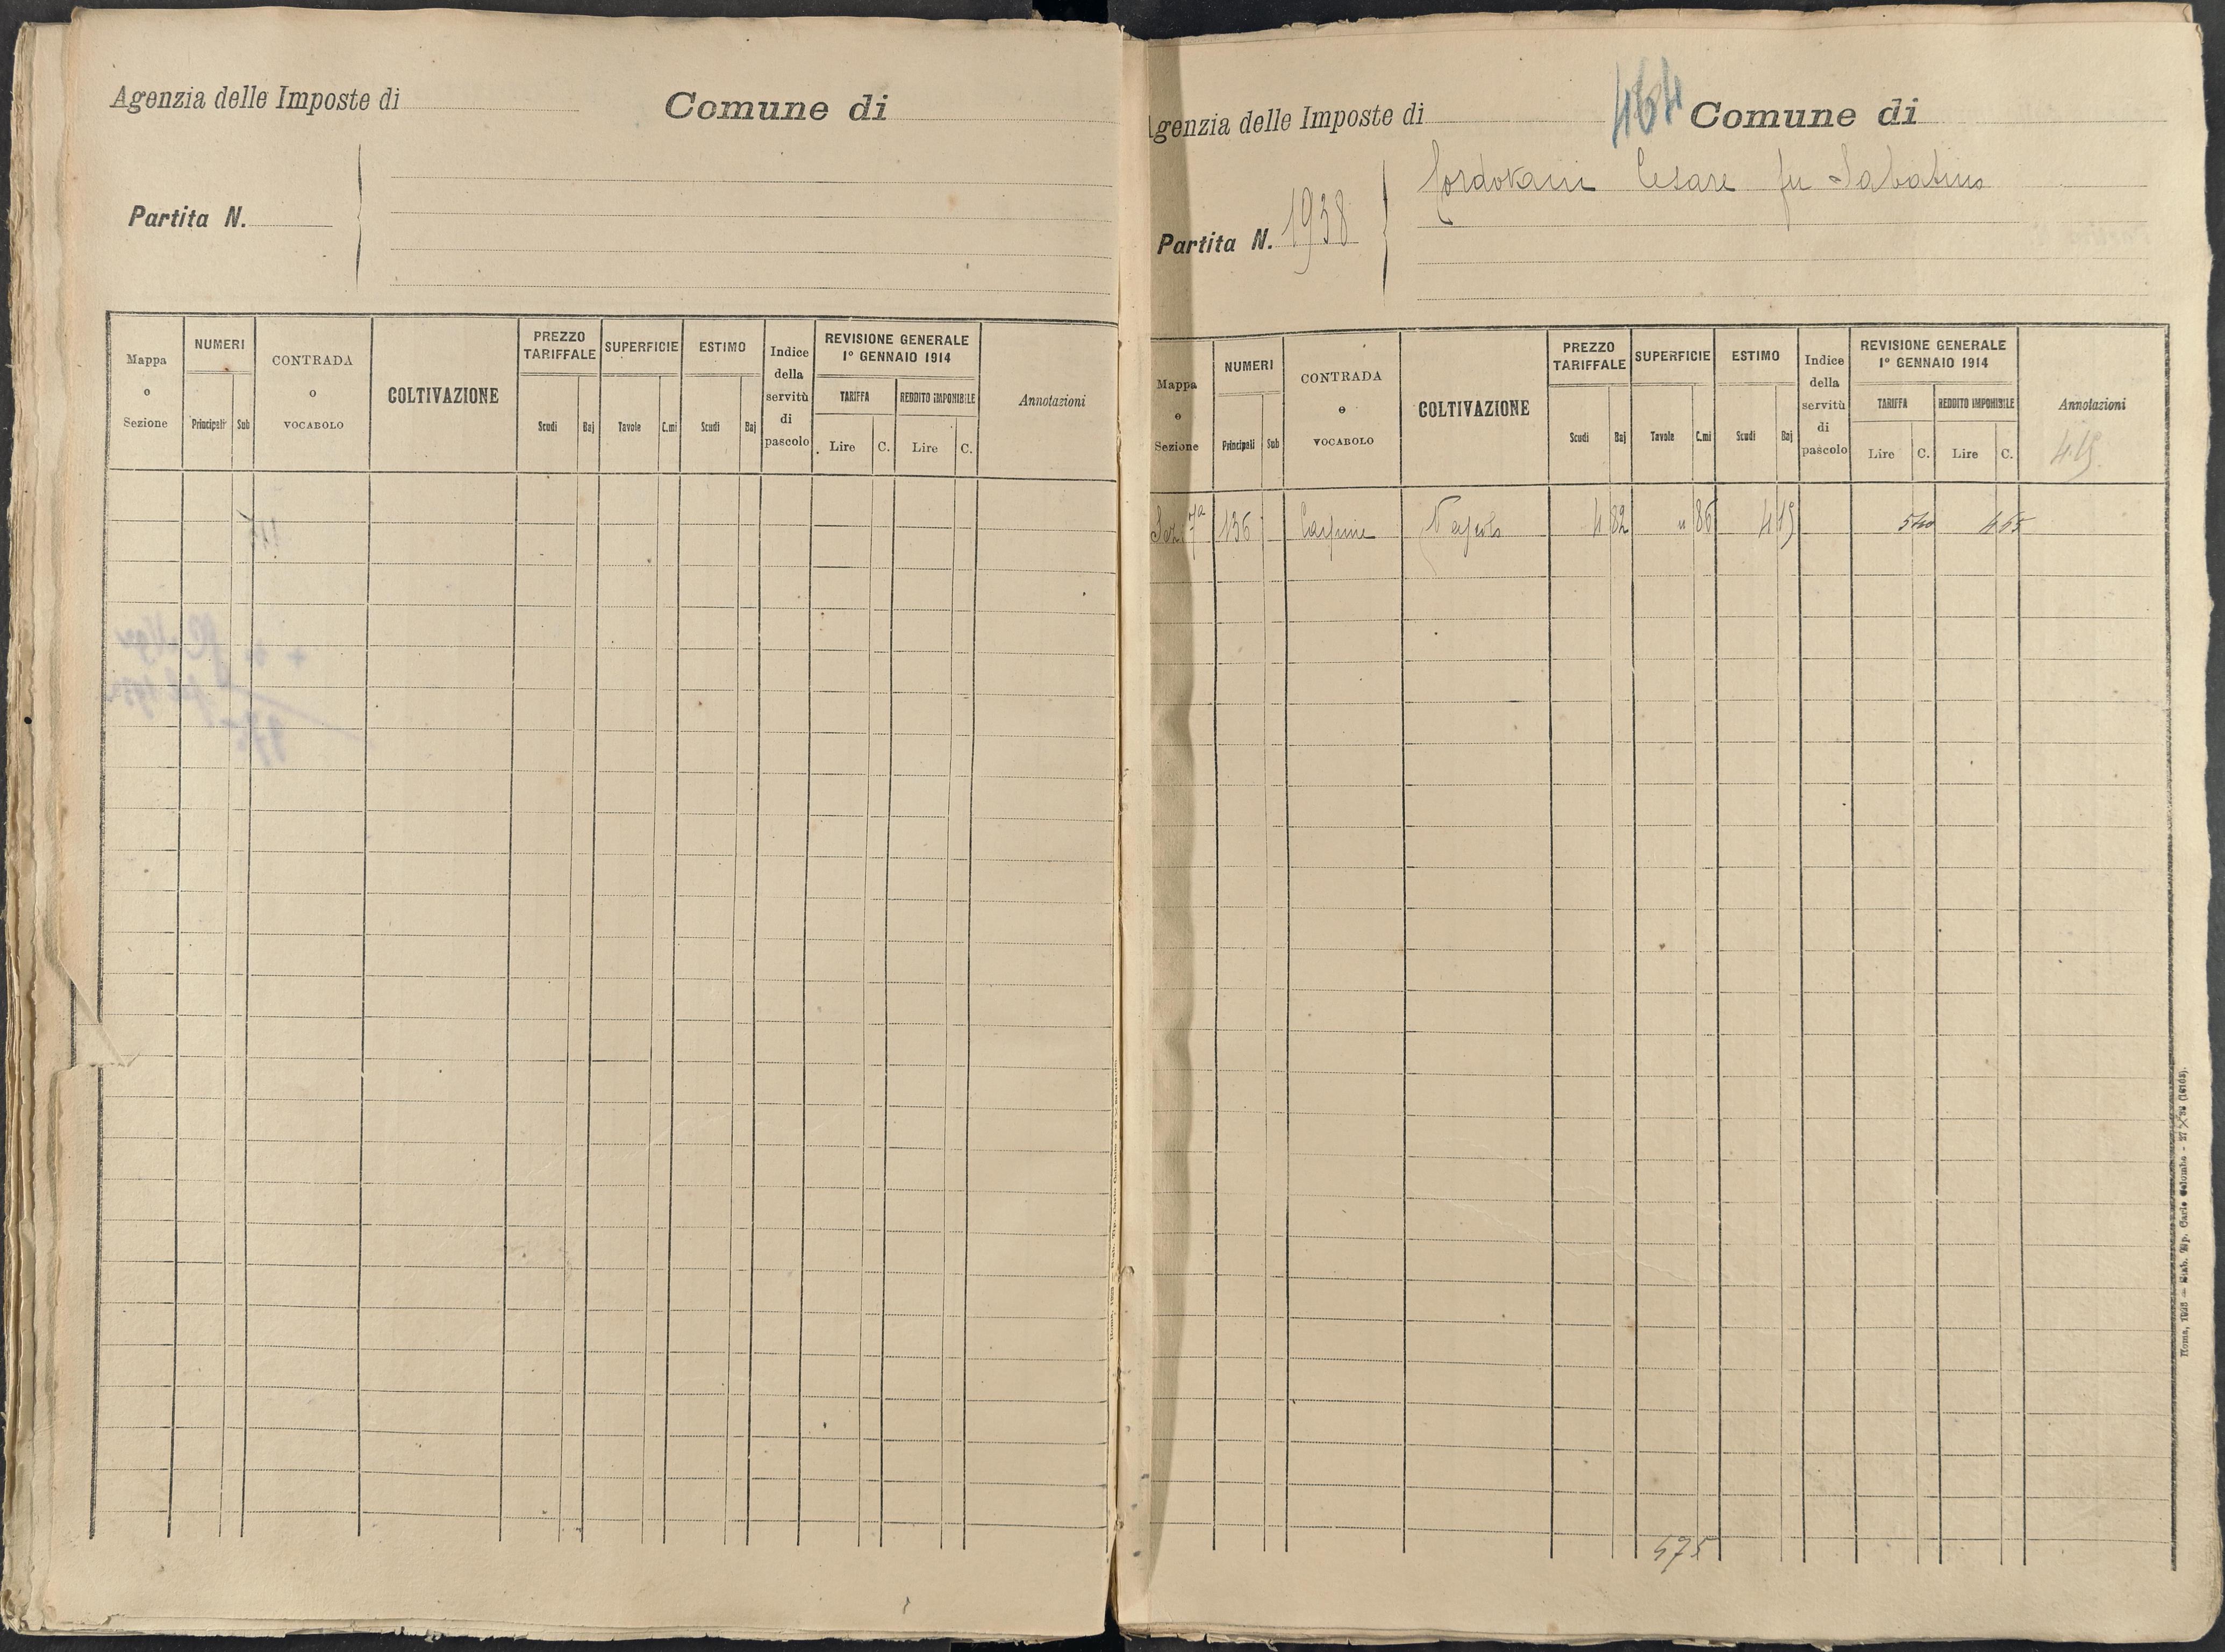 Agenzia delle Imposte di
Comune di
Partita N.
Mappa o Sezione
NUMERI
Principali Sub
CONTRADA o VOCABOLO
COLTIVAZIONE
PREZZO TARIFFALE
Scudi Baj
SUPERFICIE
Tavole C.mi
ESTIMO
Scudi Baj
Indice della servitù di pascolo
REVISIONE GENERALE
1° GENNAIO 1914
TARIFFA REDDITO IMPONIBILE
Lire C. Lire C.
Annotazioni
genzia delle Imposte di
464
Comune di
Cesare fu Sabatino
Partita N. 1938
Mappa o Sezione
NUMERI
Principali Sub
CONTRADA o VOCABOLO
COLTIVAZIONE
PREZZO TARIFFALE
Scudi Baj
SUPERFICIE
Tavole C.mi
ESTIMO
Scudi Baj
Indice della servitù di pascolo
REVISIONE GENERALE
1° GENNAIO 1914
TARIFFA REDDITO IMPONIBILE
Lire C. Lire C.
Annotazioni
4.15
Sez. 7a 136 4 82 " 86 4 15 540 465
475
Roma, 1928 — Stab. Tip. Carlo Colombo